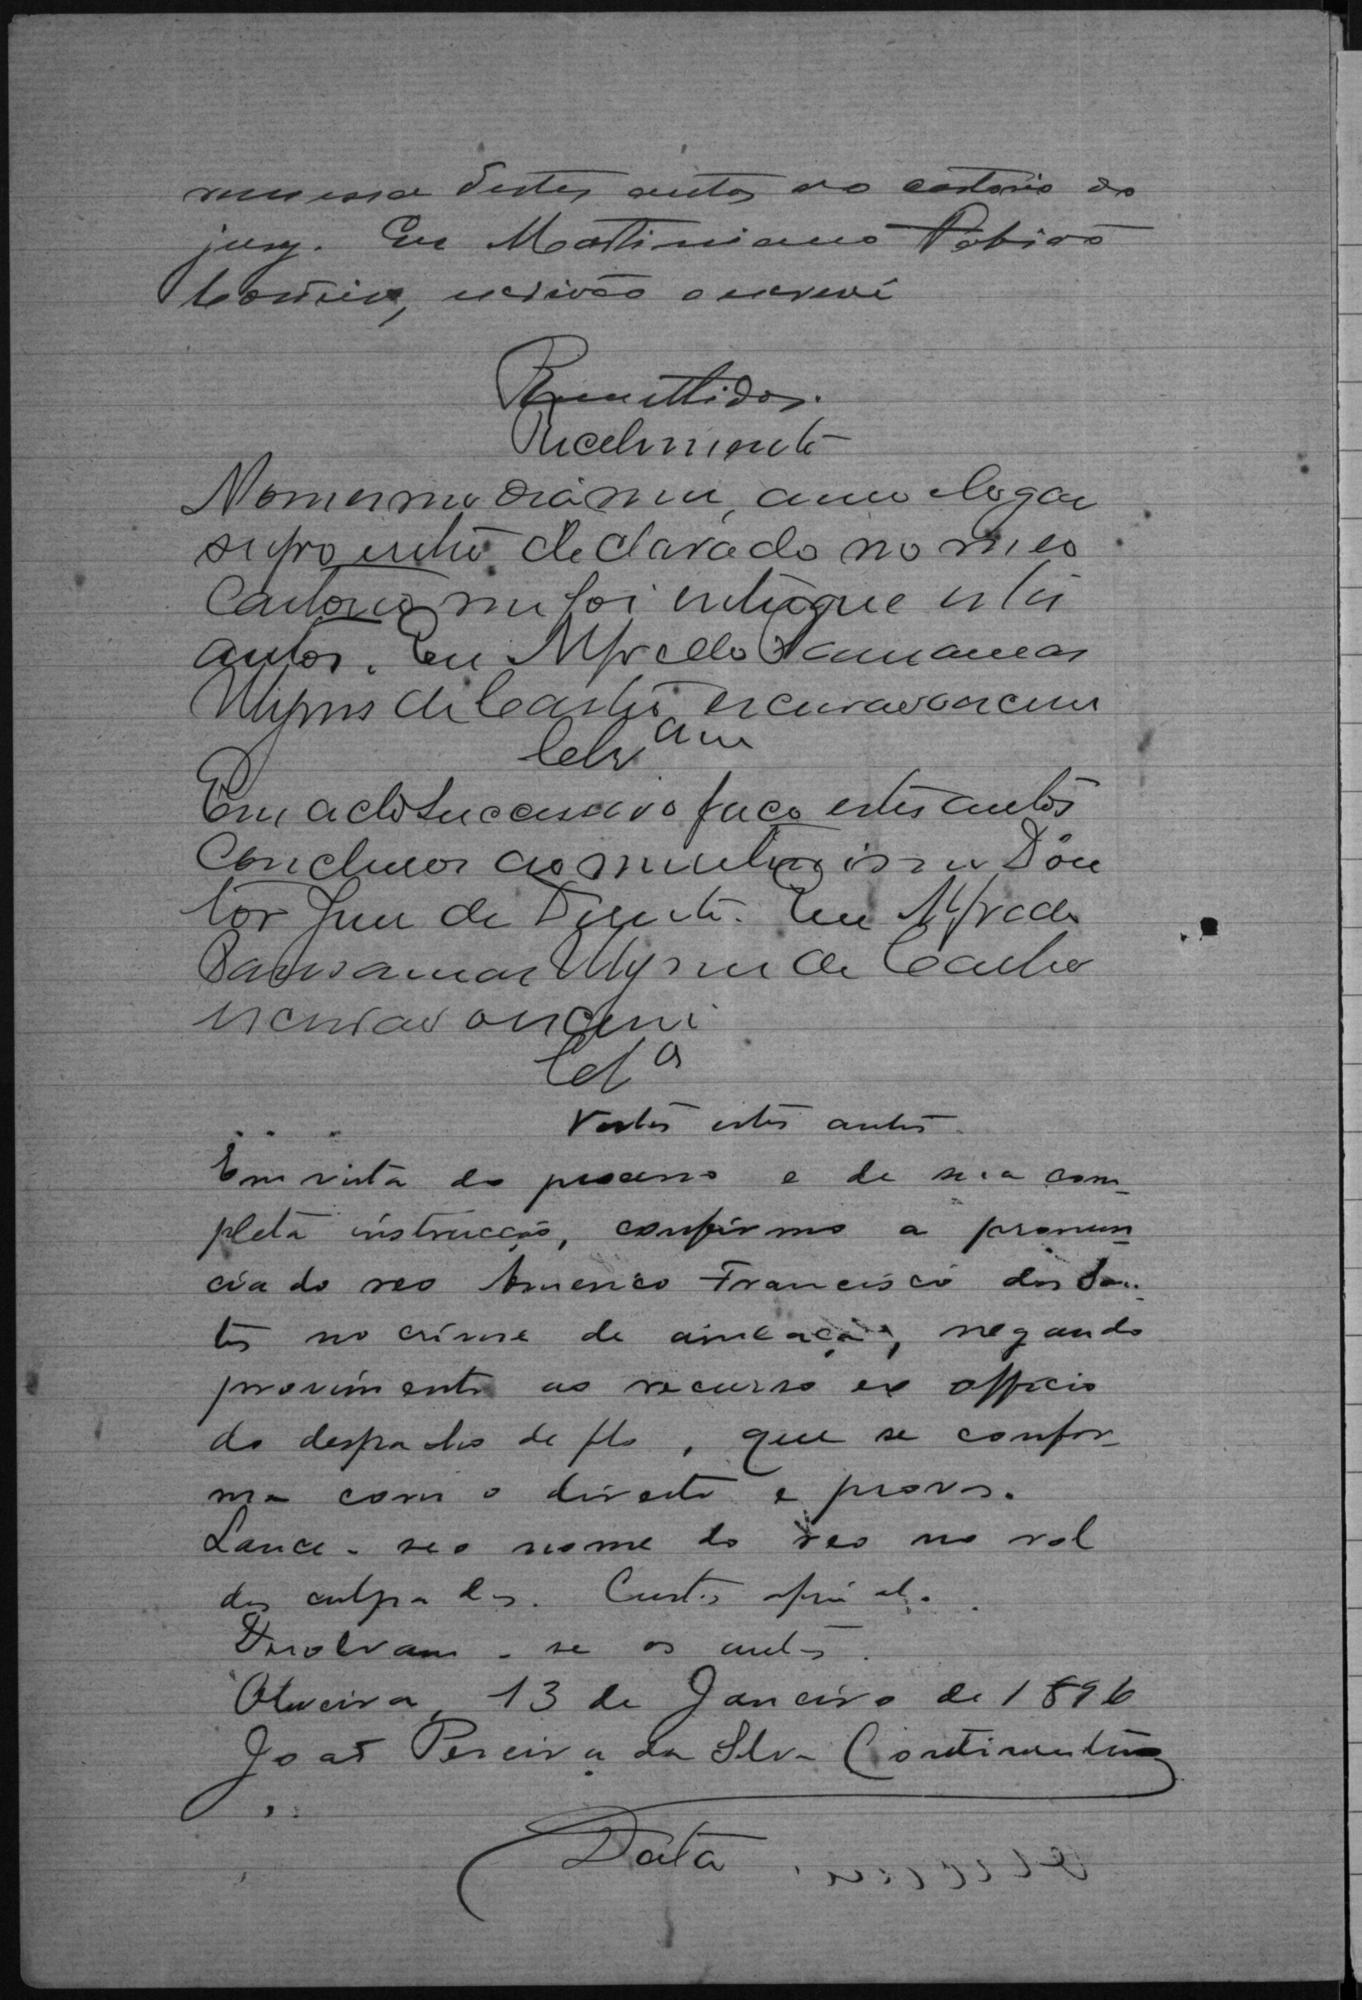 remessa destes autos ao cartorio do
jury. Eu Martiniano
escrivão o escrevi
Remettidos.
Recebimento
No mesmo dia mez, anno e logar
supro declarado no meo
Cartorio me foi entregue estes
autos. Eu Alfredo Paraamar
Ulysses de Castro escrivão o escrevi
Clsam
Em acto successivo faço estes autos
Conclusos ao meretissimo Dou
tor Juiz de Direito. Eu Alfredo
Ulysses de Castro
escrivão o escrevi
Clsa
Vistos estes autos.
Em vista do processo e de sua com-
pleta instrucção, confirmo a pronun-
cia do reo Americo Francisco dos San-
tos no crime de ameaças, negando
provimento ao recurso ex officio
do despacho de fls , que se confor-
ma com o direito e provas.
Lance-se o nome do reo no rol
dos culpados. Custas afinal.
Devolvam-se os autos.
Oliveira, 13 de Janeiro de 1896
João Pereira da Silva Continentino
Data